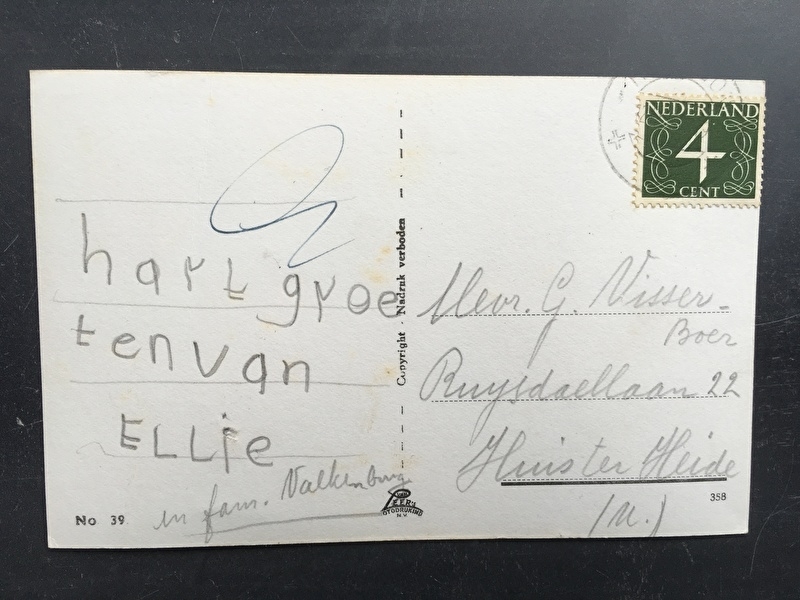 hart groe
ten van
ELLie
en fam. Valkenburg
No 39
Copyright · Nadruk verboden
VAN LEER'S
FOTODRUKIND
N.V.
NEDERLAND
4
CENT
Mevr. G. Visser-
Boer
Ruysdaellaan 22
Huis ter Heide
(U.)
358